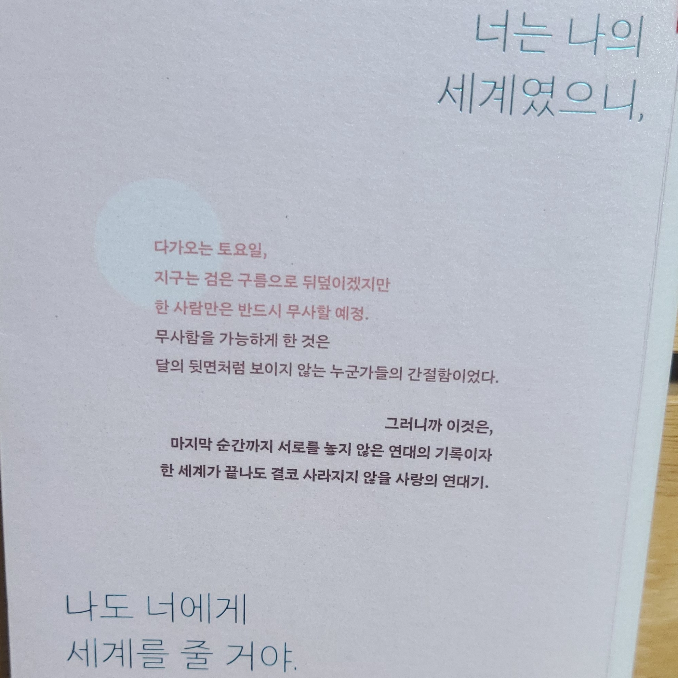 너는 나의
세계였으니,
다가오는 토요일,
지구는 검은 구름으로 뒤덮이겠지만
한 사람만은 반드시 무사할 예정.
무사함을 가능하게 한 것은
달의 뒷면처럼 보이지 않는 누군가들의 간절함이었다.
그러니까 이것은,
마지막 순간까지 서로를 놓지 않은 연대의 기록이자
한 세계가 끝나도 결코 사라지지 않을 사랑의 연대기.
나도 너에게
세계를 줄 거야.